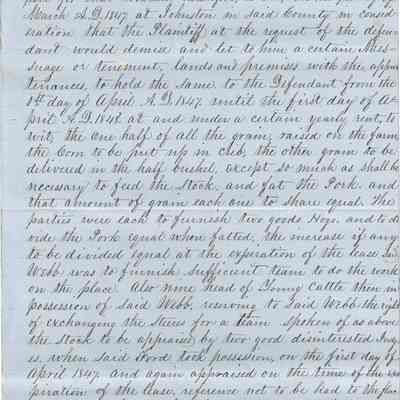 March A.D. 1847 at Johnston in said County in consid
eration that the Plaintiff at the request of the defen
dant would demise and let to him a certain Mes-
suage or tenement, lands and premises with the appur
tenances, to hold the same to the Defendant from the
1st day of April A.D. 1847. until the first day of A-
pril A.D. 1848 at and under a certain yearly rent, to
wit, the one half of all the grain, raised on the farm
the Corn to be put up in crib, the other grain to be
delivered in the half bushel, except so much as shall be
necessary to feed the Stock, and fat the Pork, and
that amount of grain each one to share equal. The
parties were each to furnish two goods Hogs, and to di
vide the Pork equal when fatted, the increase if any
to be divided equal at the expiration of the lease said
Webb was to furnish sufficient team to do the work
on the place. Also nine head of Young Cattle then in
possession of Said Webb, reserving to Said Webb the right
of exchanging the Steers for a team spoken of as above
the Stock to be appraised by two good disinterested
when said Ford took possession, on the first day of
April 1847. and again appraised on the time of the ex
piration of the lease, reference not to be had to the